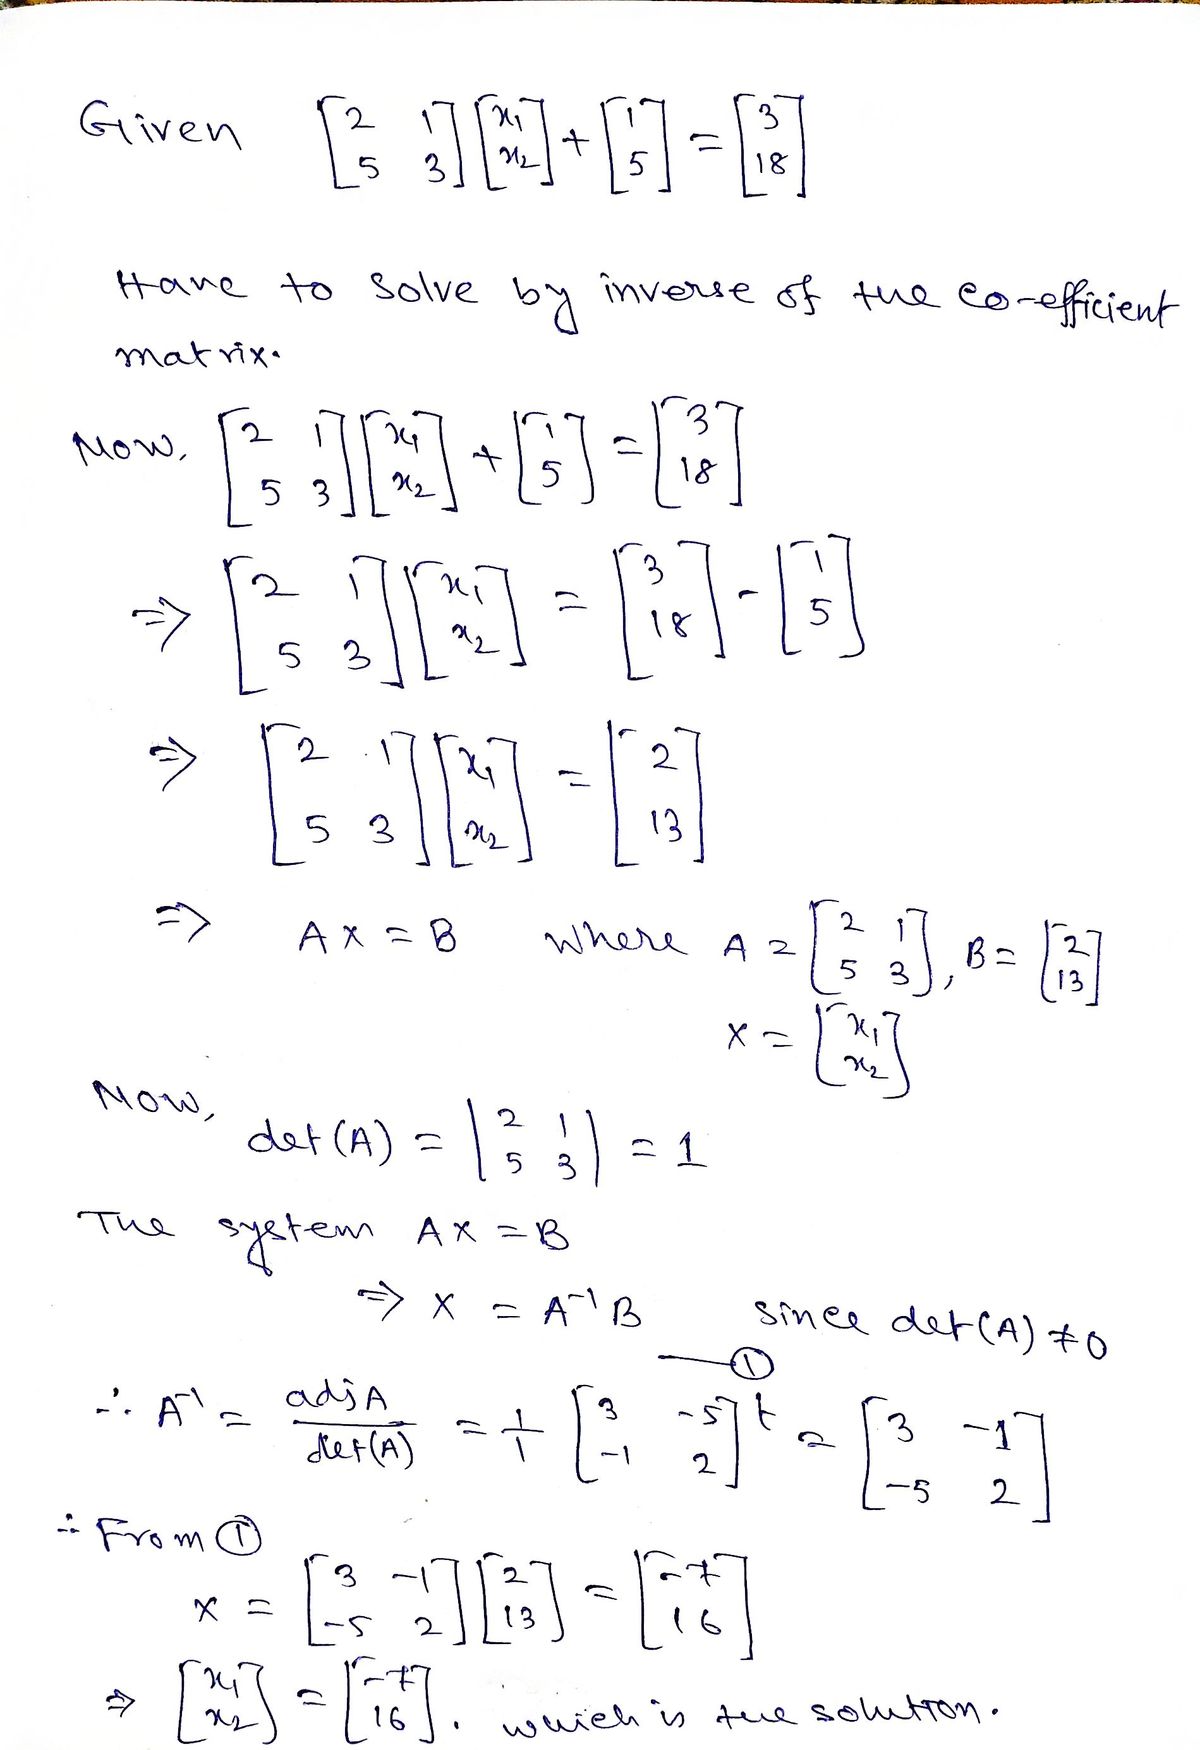 Given [2 1; 5 3] [x₁; x₂] + [1; 5] = [3; 18]
Have to solve by inverse of the co-efficient
matrix.
Now, [2 1; 5 3] [x₁; x₂] + [1; 5] = [3; 18]
⇒ [2 1; 5 3] [x₁; x₂] = [3; 18] - [1; 5]
⇒ [2 1; 5 3] [x₁; x₂] = [2; 13]
⇒ AX = B where A = [2 1; 5 3], B = [2; 13]
X = [x₁; x₂]
Now,
det(A) = |2 1; 5 3| = 1
The system AX = B
⇒ X = A⁻¹B since det(A) ≠ 0
—①
∴ A⁻¹ = adjA/det(A) = 1/1 [3 -5; -1 2]ᵗ = [3 -1; -5 2]
∴ From ①
X = [3 -1; -5 2] [2; 13] = [-7; 16]
⇒ [x₁; x₂] = [-7; 16]. which is the solution.